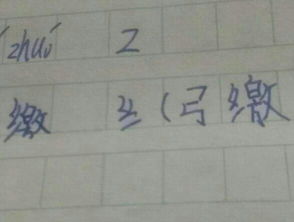 zhuó 2
缴 纟(弓缴